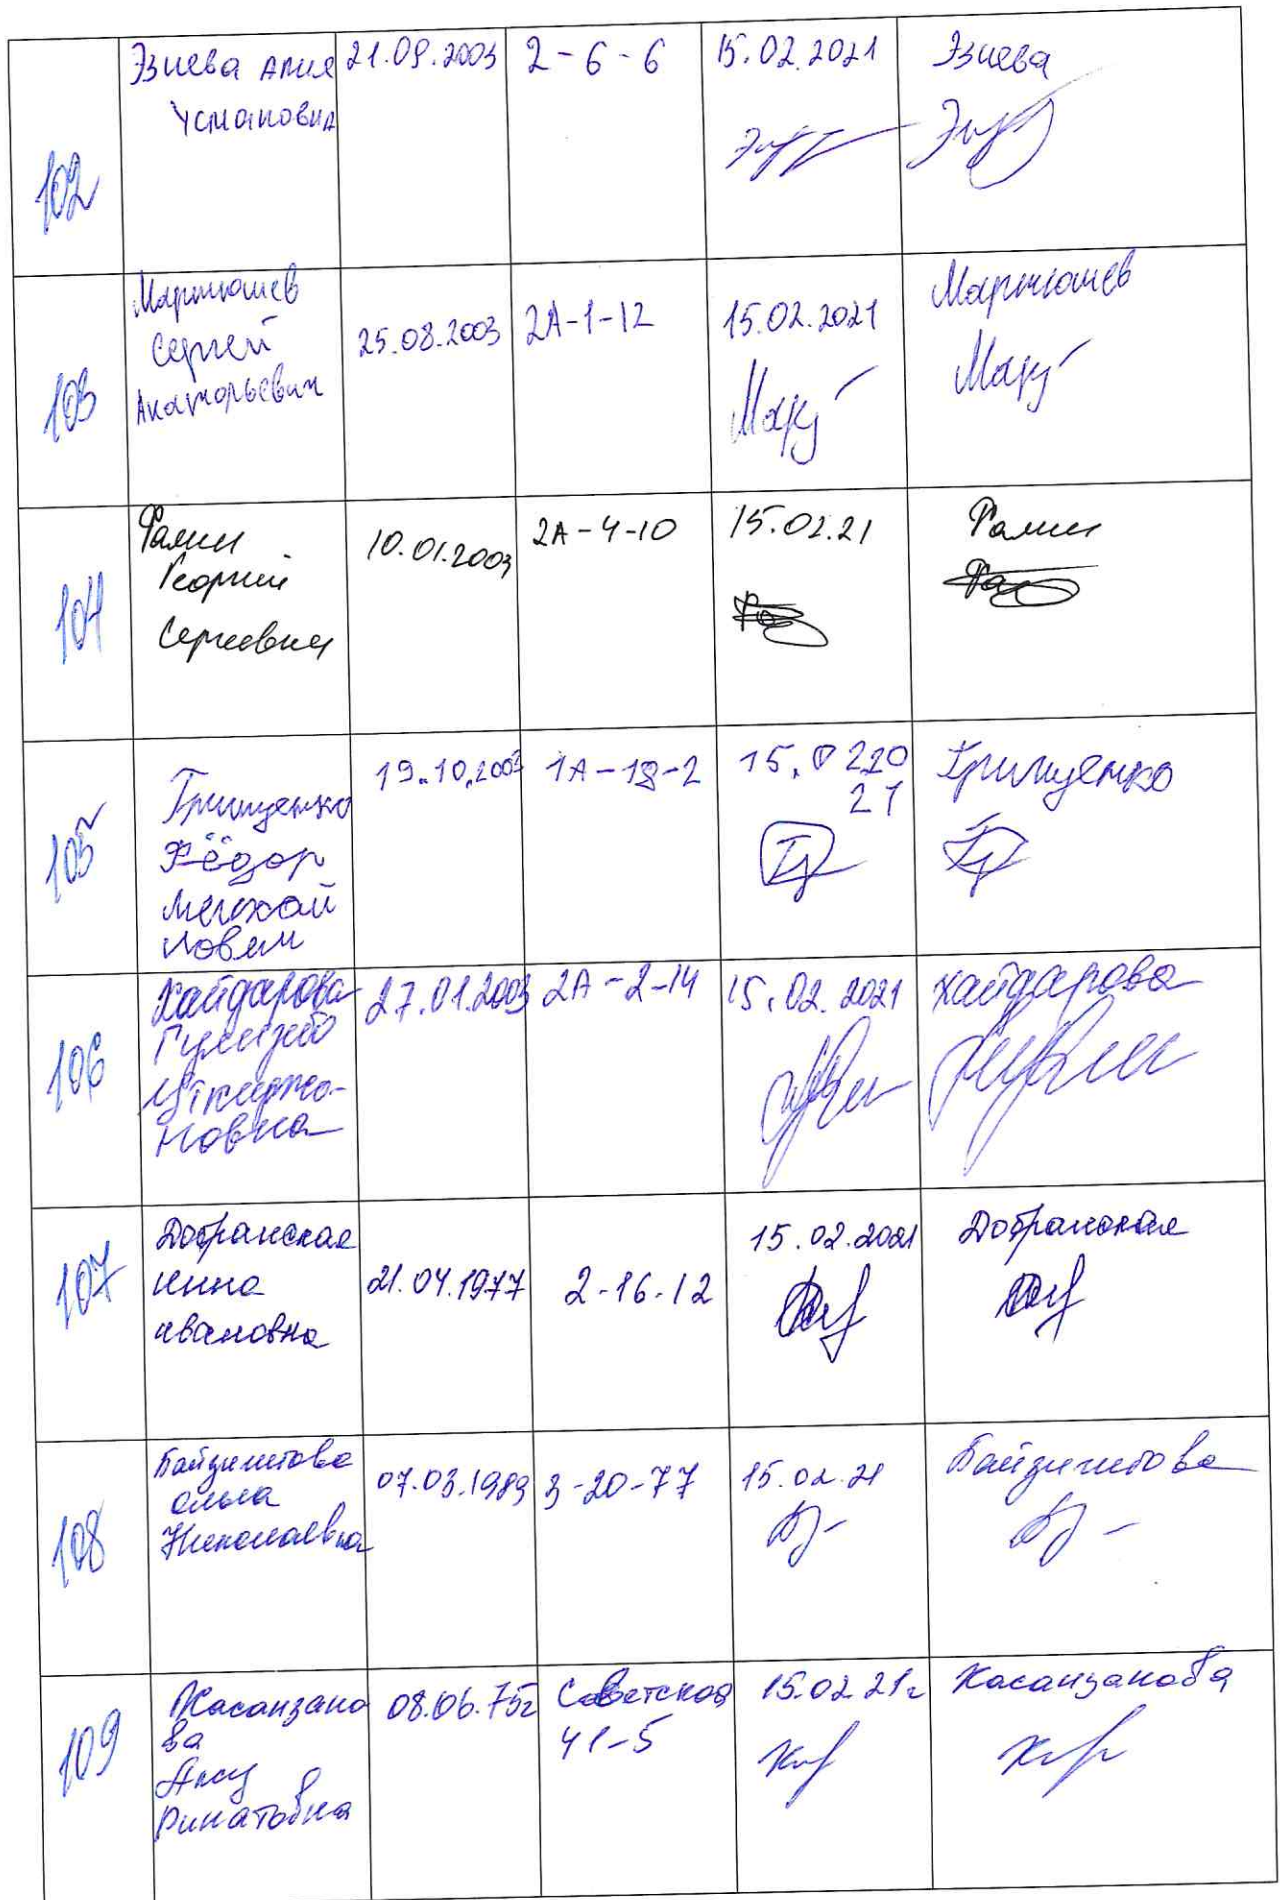 102
Эзиева Алие
Усмановна
21.09.2003
2-6-6
15.02.2021
Эзиева
103
Мартюшев
Сергей
Анатольевич
25.08.2003
2А-1-12
15.02.2021
Мартюшев
104
Фалин
Георгий
Сергеевич
10.01.2003
2А-4-10
15.02.21
Фалин
105
Грищенко
Фёдор
Михай
лович
19.10.2003
1А-18-2
15.0220
21
Грищенко
106
Хайдарова
новна
27.01.2003
2А-2-14
15.02.2021
Хайдарова
107
Добранская
Инна
Ивановна
21.04.1977
2-16-12
15.02.2021
Добранская
108
Байзигитова
Ольга
Николаевна
07.03.1989
3-20-77
15.02.21
Байзигитова
109
Хасанзано
ва
Ринатовна
08.06.75г
Советская
41-5
15.02.21г
Хасанзанова